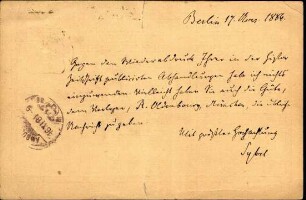 Berlin 17. Nov. 1886.
Gegen den Wiederabdruck Ihrer in der Histor.
Zeitschrift publizirten Abhandlungen habe ich nichts
einzuwenden. Vielleicht haben Sie auch die Güte,
dem Verleger, R. Oldenbourg, München, die übliche
Nachricht zu geben.
Mit größter Hochachtung
Sybel